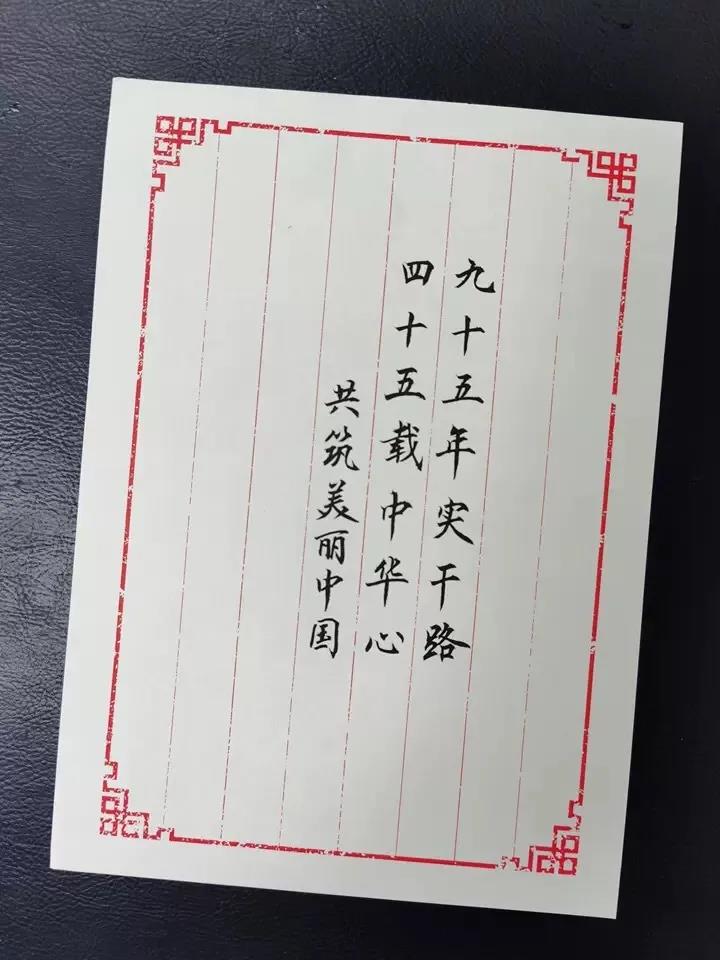 九十五年实干路
四十五载中华心
共筑美丽中国